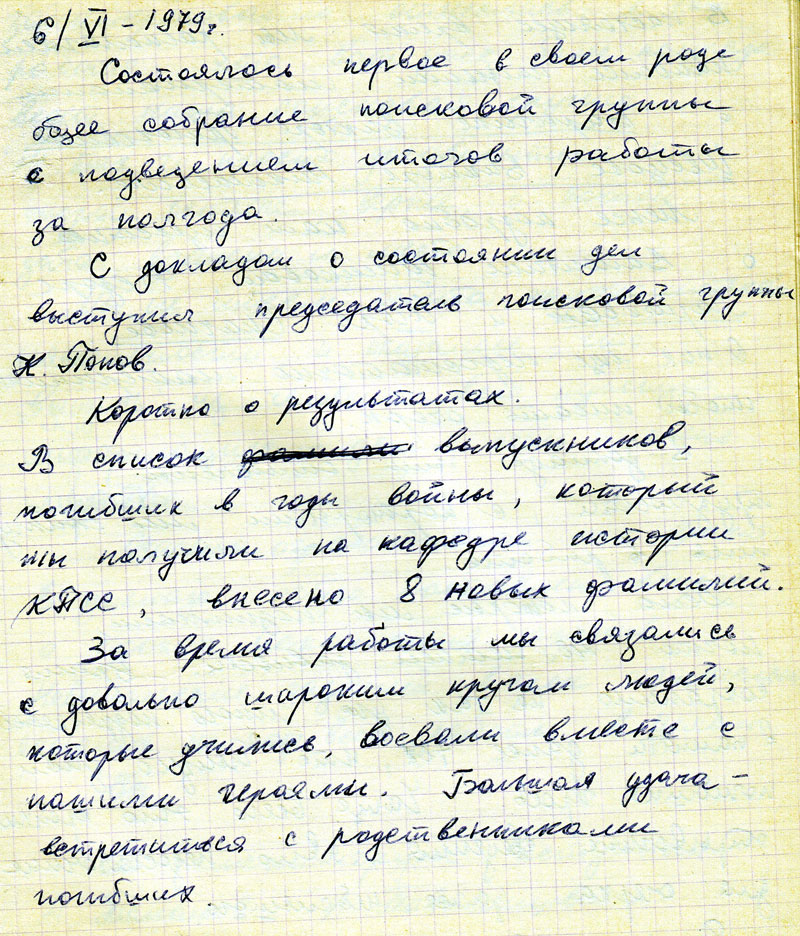 6/VI-1979г.
Состоялось первое в своем роде
более собрание поисковой группы
с подведением итогов работы
за полгода.
С докладом о состоянии дел
выступил председатель поисковой группы
Н. Попов.
Коротко о результатах.
В список фамилий выпускников,
погибших в годы войны, который
мы получили на кафедре истории
КПСС, внесено 8 новых фамилий.
За время работы мы связались
с довольно широким кругом людей,
которые учились, воевали вместе с
нашими героями. Большая удача –
встретиться с родственниками
погибших.